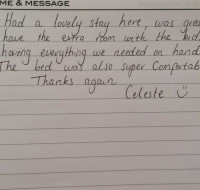 ME & MESSAGE
Had a lovely stay here, was grea
have the extra room with the kid
having everything we needed on hand
The bed was also super comfortab
Thanks again
Celeste ☺